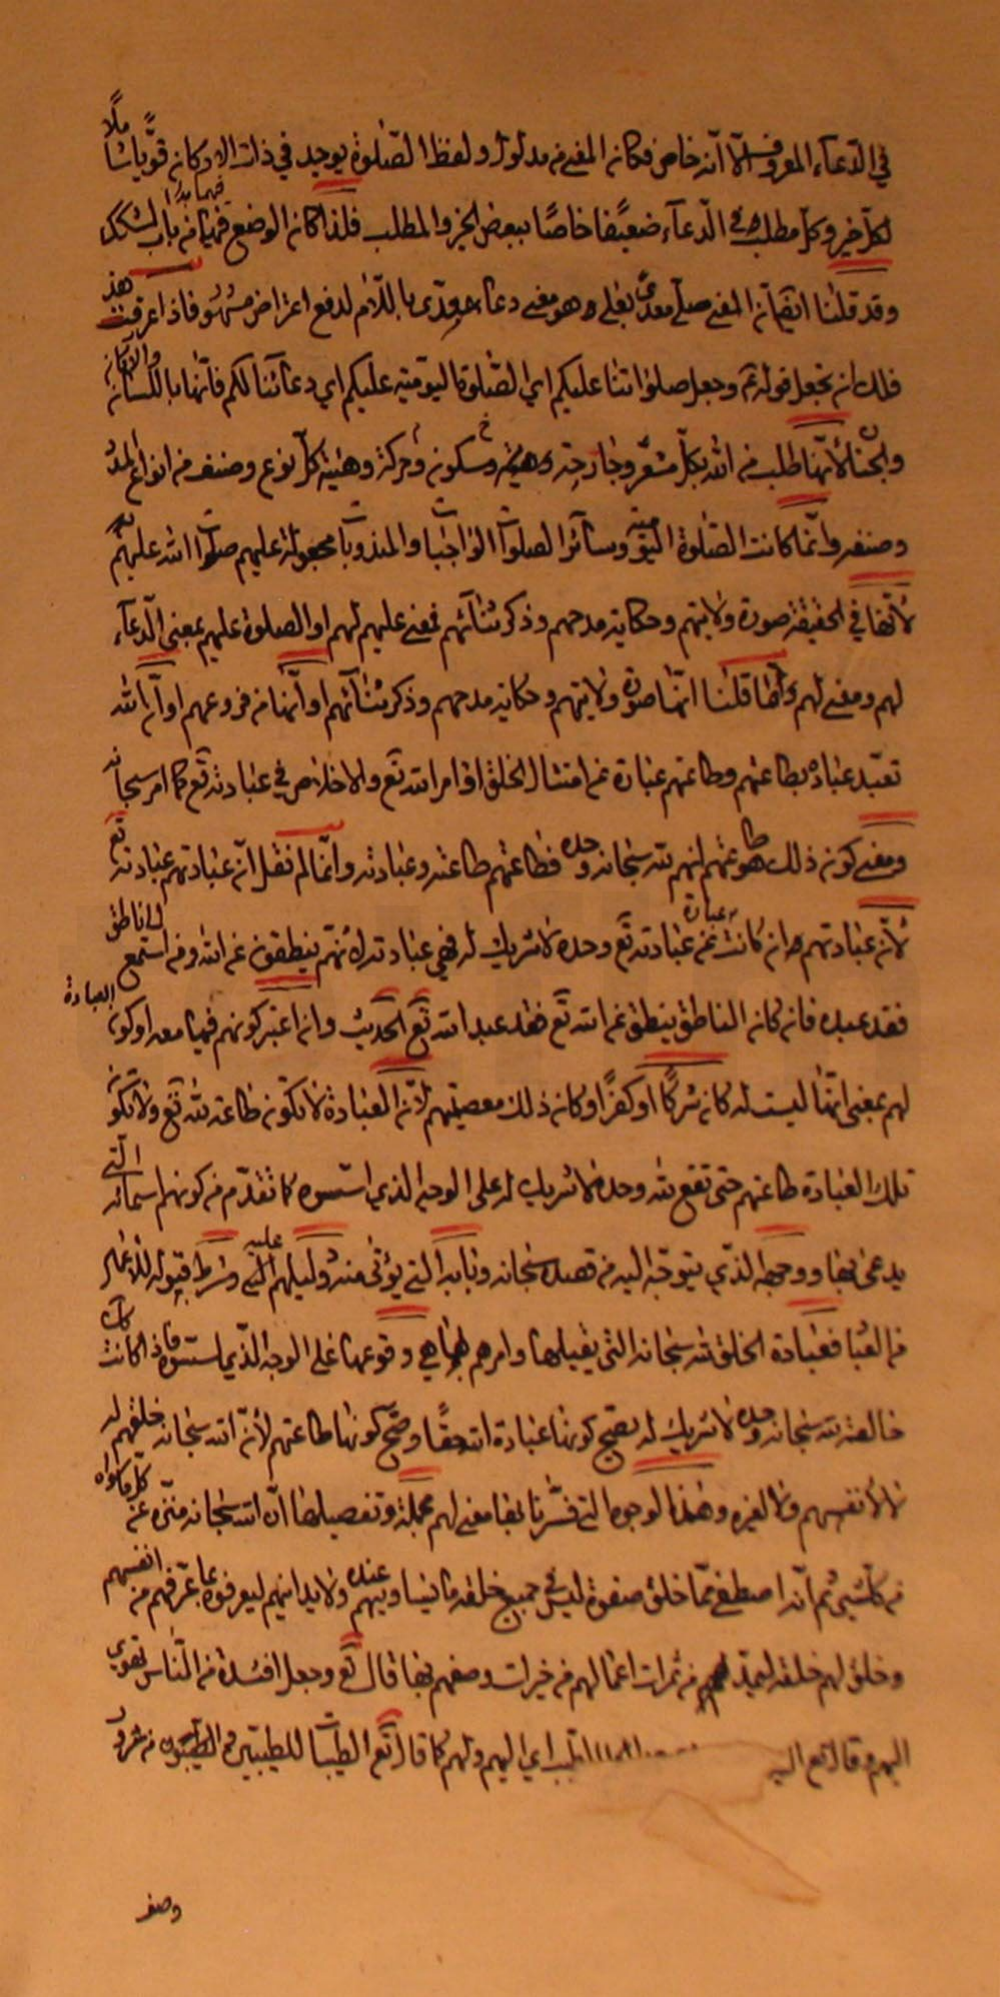 في الدعآء المعروف الّا انّه خاص فكان المعنى من مدلول ولفظ الصّلوة يوجد في ذلك الا وكان قويّا شاملًا
لكلّ خير وكلّ مطلب وفي الدّعآء ضعيفًا خاصًا ببعض الخير والمطلب فلذا كان الوضع فيهما من باب التشكيك
وقد قلنا انّ معنى صلّى معدّى بعلى هو معنى دعاء معدّى باللّام لدفع اعتراض مشهور فاذا عرفت هذا
فلك ان تجعل قوله ثم وجعل صلواتنا عليكم اي الصّلوة اليوميّة عليكم اي دعآئنا لكم فانّها باللسان والاركان
والجنان لانّها طلب من اللّه بكلّ مشعر وجارحة وهيئة وسكون وحركة وهيئة كلّ نوع وصنف من انواع المدد
وصنفه وانّما كانت الصّلوة اليوميّة وسآئر الصلوات الواجبات والمندوبات مجعولة عليهم صلوات اللّه عليهم
لانّها في الحقيقة صورة ولايتهم وحكاية مدحهم وذكر ثنآئهم فمعنى عليهم لهم او الصلوة عليهم بمعنى الدّعآء
لهم ومعنى لهم ما قلنا انّها صورة ولايتهم وحكاية مدحهم وذكر ثنآئهم او انّها من فروعهم او انّ اللّه
تعبّد عباده بطاعتهم وطاعتهم عبارة عن امتثال الخلق اوامر اللّه تع والاخلاص في عبادته تع كما امر سبحانه
ومعنى كون ذلك طاعتهم انهم للّه سبحانه وحده فطاعتهم طاعته وعبادته وانّما لم نقل انّ عبادتهم عبادته تع
لأنّ عبادتهم وان كانت عبارة عن عبادته تع وحده لا شريك له فهي عبادته لانّهم ينطقون عن اللّه ومن استمع الى ناطق
فقد عبده فان كان الناطق ينطق عن اللّه تع فقد عبد اللّه تع الحديث وان اعتبر كونهم فيها معه او كون العبادة
لهم بمعنى انّها ليست له كان شركًا او كفرًا وكان ذلك معصيتهم لانّ العبادة لا تكون طاعة للّه تع ولا تكون
تلك العبادة طاعتهم حتى تقع للّه وحده لا شريك له على الوجه الذي اسّسوه كما تقدّم من كونهم اسمآئه الّتي
يدعى بها ووجهه الذّي يتوجّه اليه من قصده سبحانه وبابه الّتي يؤتى منه ودليلهم عليه الّتي وشرط قبوله للاعمال
من العباد فعبادة الخلق للّه سبحانه الّتي يقبلها وامرهم بها هي وقوعها على الوجه الذّي اسّسوه فاذا كانت كذلك
خالصة للّه سبحانه وحده لا شريك له يصحّ كونها عبادة اللّه حقّا وصحّ كونها طاعتهم لأنّ اللّه سبحانه خلقهم له
لا لأنفسهم ولا لغيره وهذه الوجوه الّتي فسّرنا بها معنى لهم مجملة وتفصيلها انّ اللّه سبحانه منزّه عن كلّ ما سواه
من كلّ شيئ ثم انّه اصطفى ممّا خلق صفوة ليس في جميع خلقه ما يساويهم عنده ولا يدانيهم ليعرفوه بما عرّفهم من انفسهم
وخلق لهم خلقه ليمدّهم من ثمرات اعمالهم من خيرات وصفهم بها قال تع وجعل افئدة من النّاس تهوي
اليهم وقال تع اليه اي اليهم ولهم كما قال تع الطيّبات للطيّبين والطيّبون من شرور
وصف